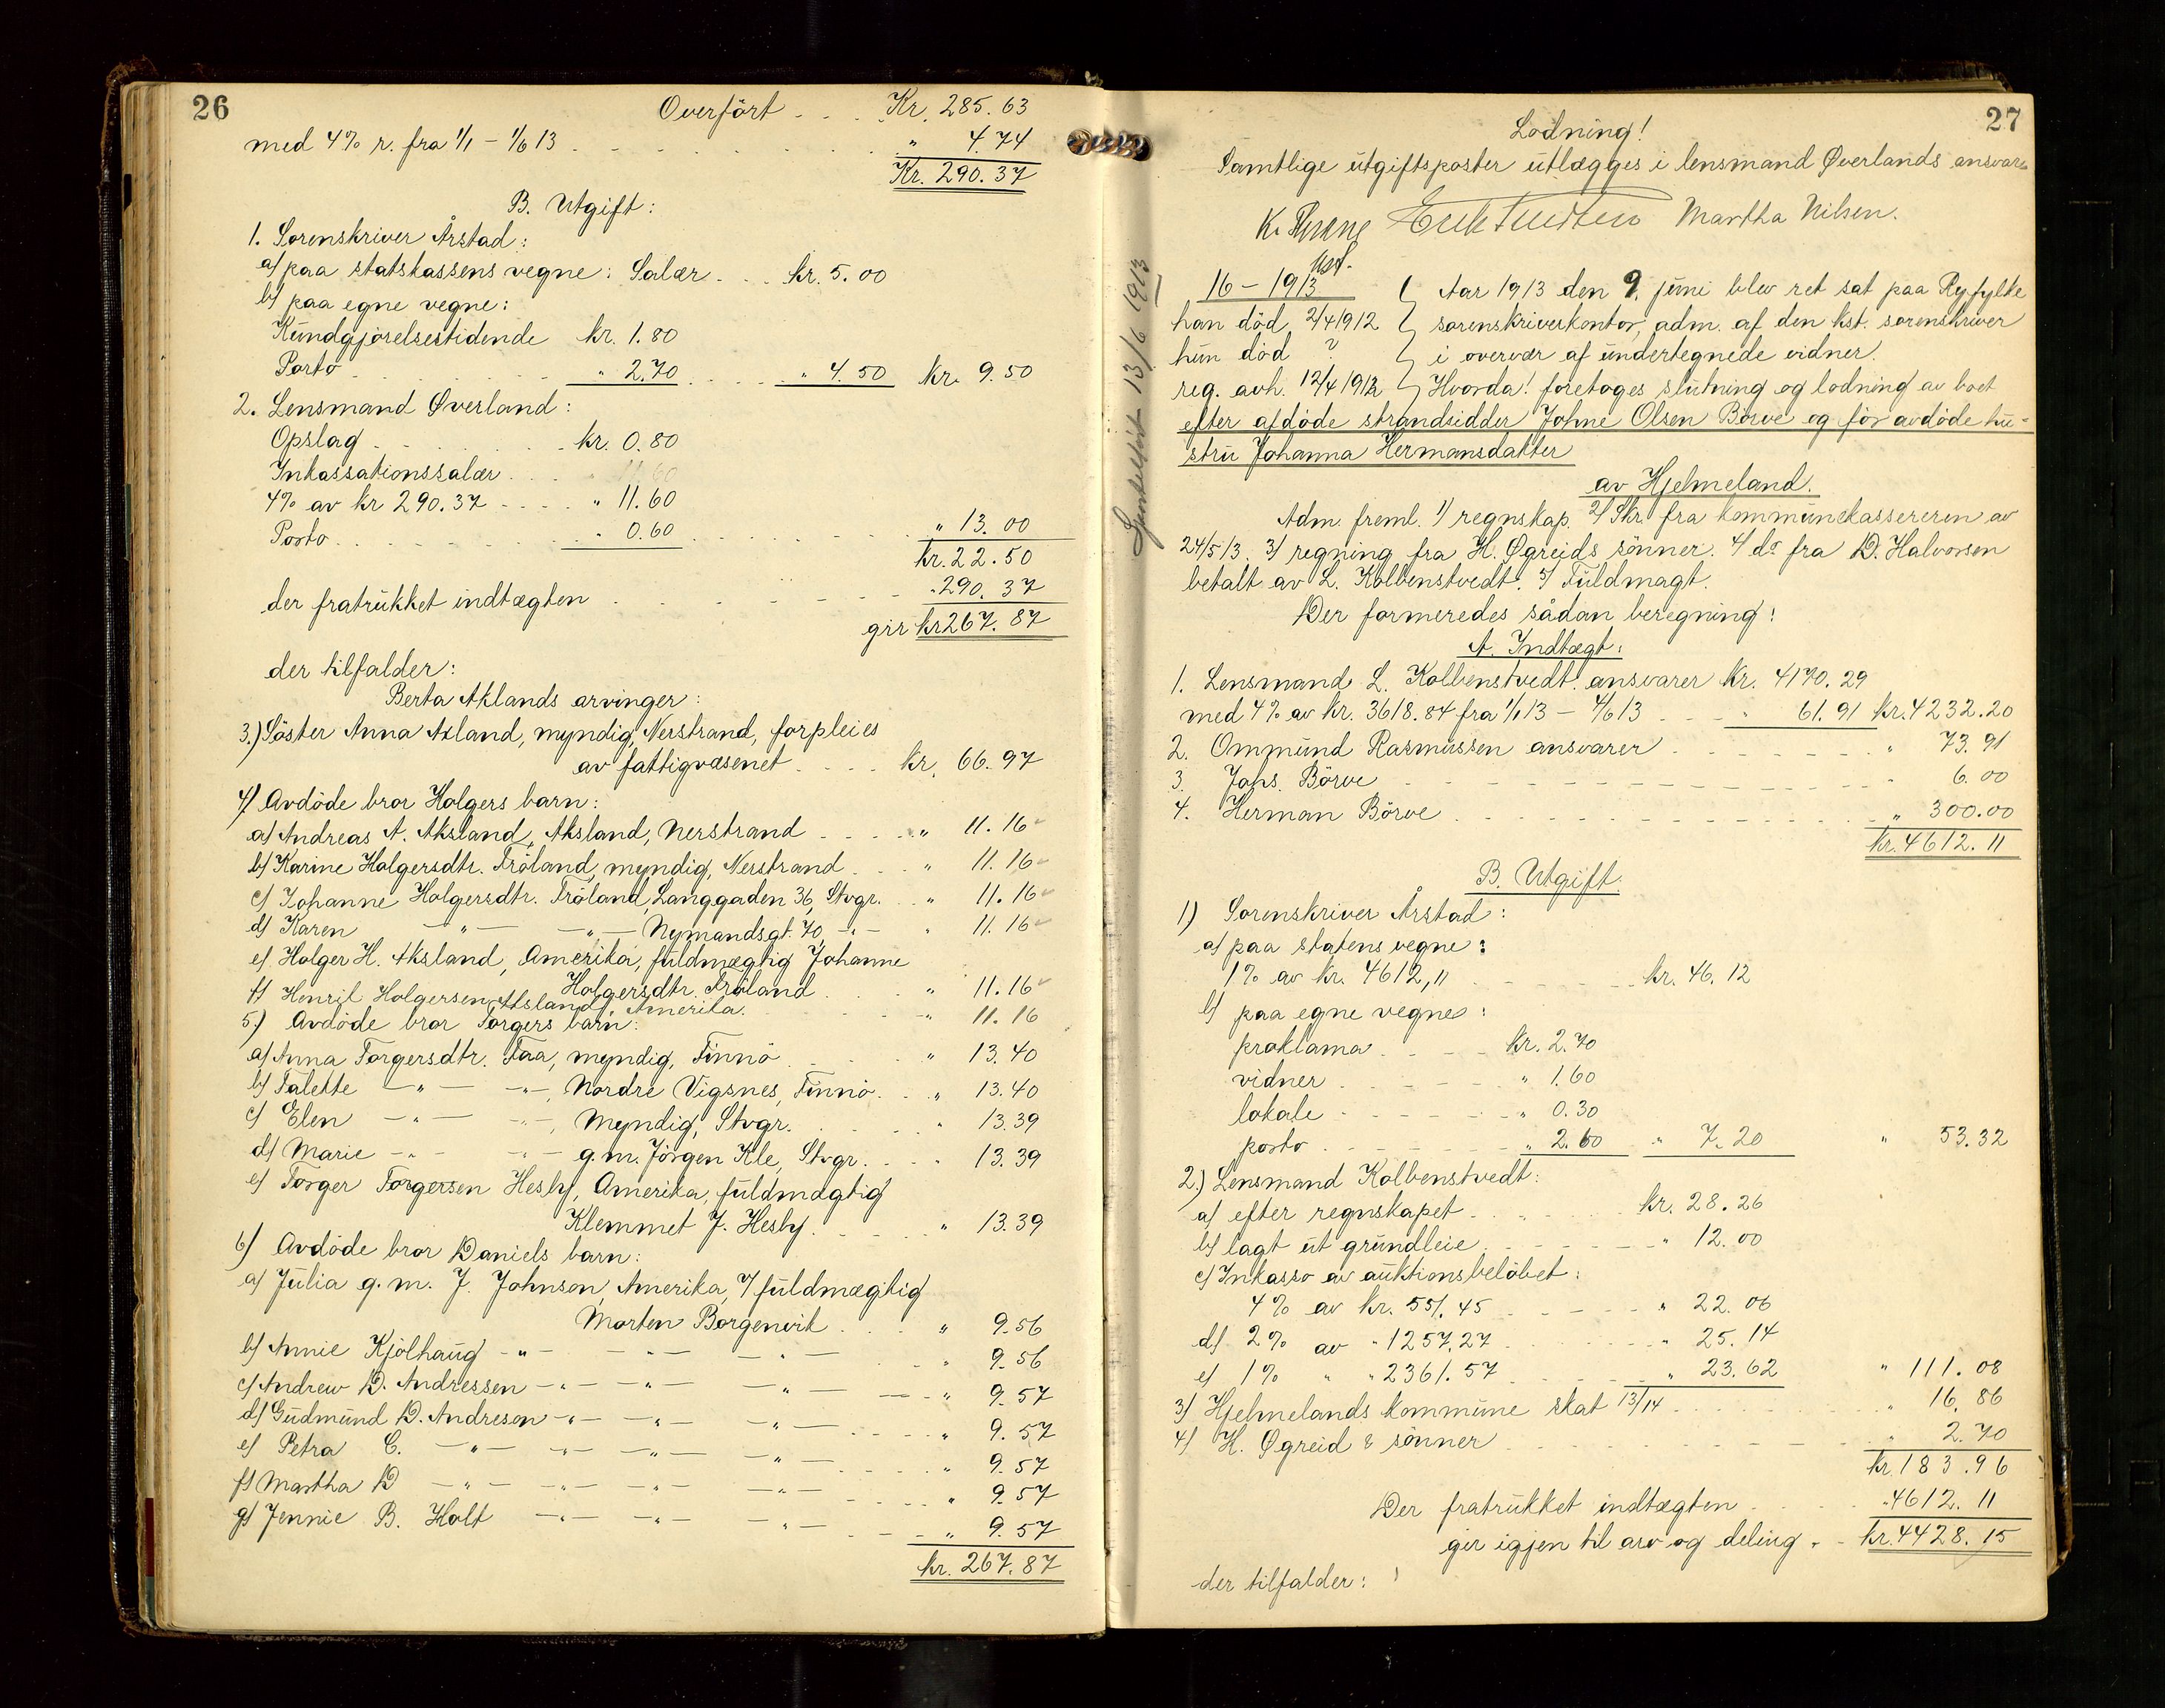 26
Overfört . . . Kr. 285.63
med 4% r. fra 1/1 - 1/6 13 . . . " 4.74
Kr. 290.37
B. Utgift:
1. Sorenskriver Årstad:
a/ paa statskassens vegne: Salær . . . kr. 5.00
b/ paa egne vegne:
Kundgjörelsestidende kr. 1.80
Porto . . . " 2.70 . . . " 4.50 kr. 9.50
2. Lensmand Øverland:
Opslag . . . kr. 0.80
Inkassationssalær . . .
4% av kr 290.37 . . . " 11.60
Porto . . . " 0.60 . . . " 13.00
kr. 22.50
der fratrukket indtægten . . . " 290.37
gir kr 267.87
der tilfalder:
Berta Akslands arvinger:
3.) Söster Anna Axland, myndig, Nerstrand, forpleies
av fattigvæsenet . . . kr. 66.97
4/ Avdöde bror Holgers barn:
a/ Andreas A. Aksland, Aksland, Nerstrand . . . " 11.16
b/ Karine Holgersdtr. Fröland, myndig, Nerstrand . . . " 11.16
c/ Johanne Holgersdtr. Fröland, Langgaden 36, Stvgr. . . " 11.16
d/ Karen — " — — " — Nymandsgt. 70, — " — " 11.16
e/ Holger H. Aksland, Amerika, fuldmægtig Johanne
Holgersdtr. Fröland . . . " 11.16
f/ Henrik Holgersen Aksland, Amerika. . . . " 11.16
5.) Avdöde bror Torgers barn:
a/ Anna Torgersdtr. Faa, myndig, Finnö . . . " 13.40
b/ Talette — " — — " —, Nordre Vigsnes, Finnö . . . " 13.40
c/ Elen — " — — " —, Myndig, Stvgr. . . . " 13.39
d/ Marie — " — — " — g.m. Jörgen Kle, Stvgr. . . . " 13.39
e/ Torger Torgersen Hesby, Amerika, fuldmægtig
Klemmet J. Hesby . . . " 13.39
6/ Avdöde bror Daniels barn:
a/ Julia g. m. J. Johnson, Amerika, fuldmægtig
Morten Borgenvik . . . " 9.56
b/ Annie Kjölhaug — " — — " — — " — . . . " 9.56
c/ Andrew D. Andressen — " — — " — — " — . . . " 9.57
d/ Gudmund D. Andresen — " — — " — — " — . . . " 9.57
e/ Petra C. — " — — " — — " — — " — . . . " 9.57
f/ Martha D — " — — " — — " — — " — . . . " 9.57
g/ Jennie B. Holt — " — — " — — " — . . . " 9.57
kr. 267.87
27
Lodning!
Samtlige utgiftsposter utlægges i lensmand Øverlands ansvar
Martha Nilsen.
16 - 1913
han död 2/4 1912
hun död ?
reg. avh. 12/4 1912
Aar 1913 den 9. juni blev ret sat paa Ryfylke
sorenskriverkontor, adm. af den kst. sorenskriver
i overvær af undertegnede vidner.
Hvorda! foretoges slutning og lodning av boet
efter afdöde strandsidder Johne Olsen Börve og för avdöde hu-
stru Johanna Hermansdatter
av Hjelmeland.
Adm. freml. 1/ regnskap. 2/ Skr. fra kommunekassereren av
24/5 13. 3/ regning fra H. Øgreids sönner. 4/ do fra D. Halvorsen
betalt av L. Kolbenstvedt. 5/ Fuldmagt.
Der formeredes sådan beregning:
A. Indtægt:
1. Lensmand L. Kolbenstvedt ansvarer Kr. 4170.29
med 4% av kr. 3618.84 fra 1/1 13 - 4/6 13 . . . " 61.91 kr. 4232.20
2. Ommund Rasmussen ansvarer . . . " 73.91
3. Johs. Börve . . . " 6.00
4. Herman Börve . . . " 300.00
kr. 4612.11
B. Utgift.
1) Sorenskriver Årstad:
a/ paa statens vegne:
1% av kr. 4612,11 . . . kr. 46.12
b/ paa egne vegne:
proklama . . . kr. 2.70
vidner . . . " 1.60
lokale . . . " 0.30
porto . . . " 2.60 " 7.20 " 53.32
2.) Lensmand Kolbenstvedt:
a/ efter regnskapet . . . kr. 28.26
b/ lagt ut grundleie . . . " 12.00
c/ Inkasso av auktionsbelöbet:
4% av kr. 551.45 . . . " 22.06
d/ 2% av " 1257,27 . . . " 25.14
e/ 1% " " 2361.57 . . . " 23.62 " 111.08
3/ Hjelmelands kommune skat 13/14 . . . " 16.86
4/ H. Øgreid & sönner . . . " 2.70
kr. 183.96
Der fratrukket indtægten . . . " 4612.11
gir igjen til arv og deling . . kr. 4428.15
der tilfalder: